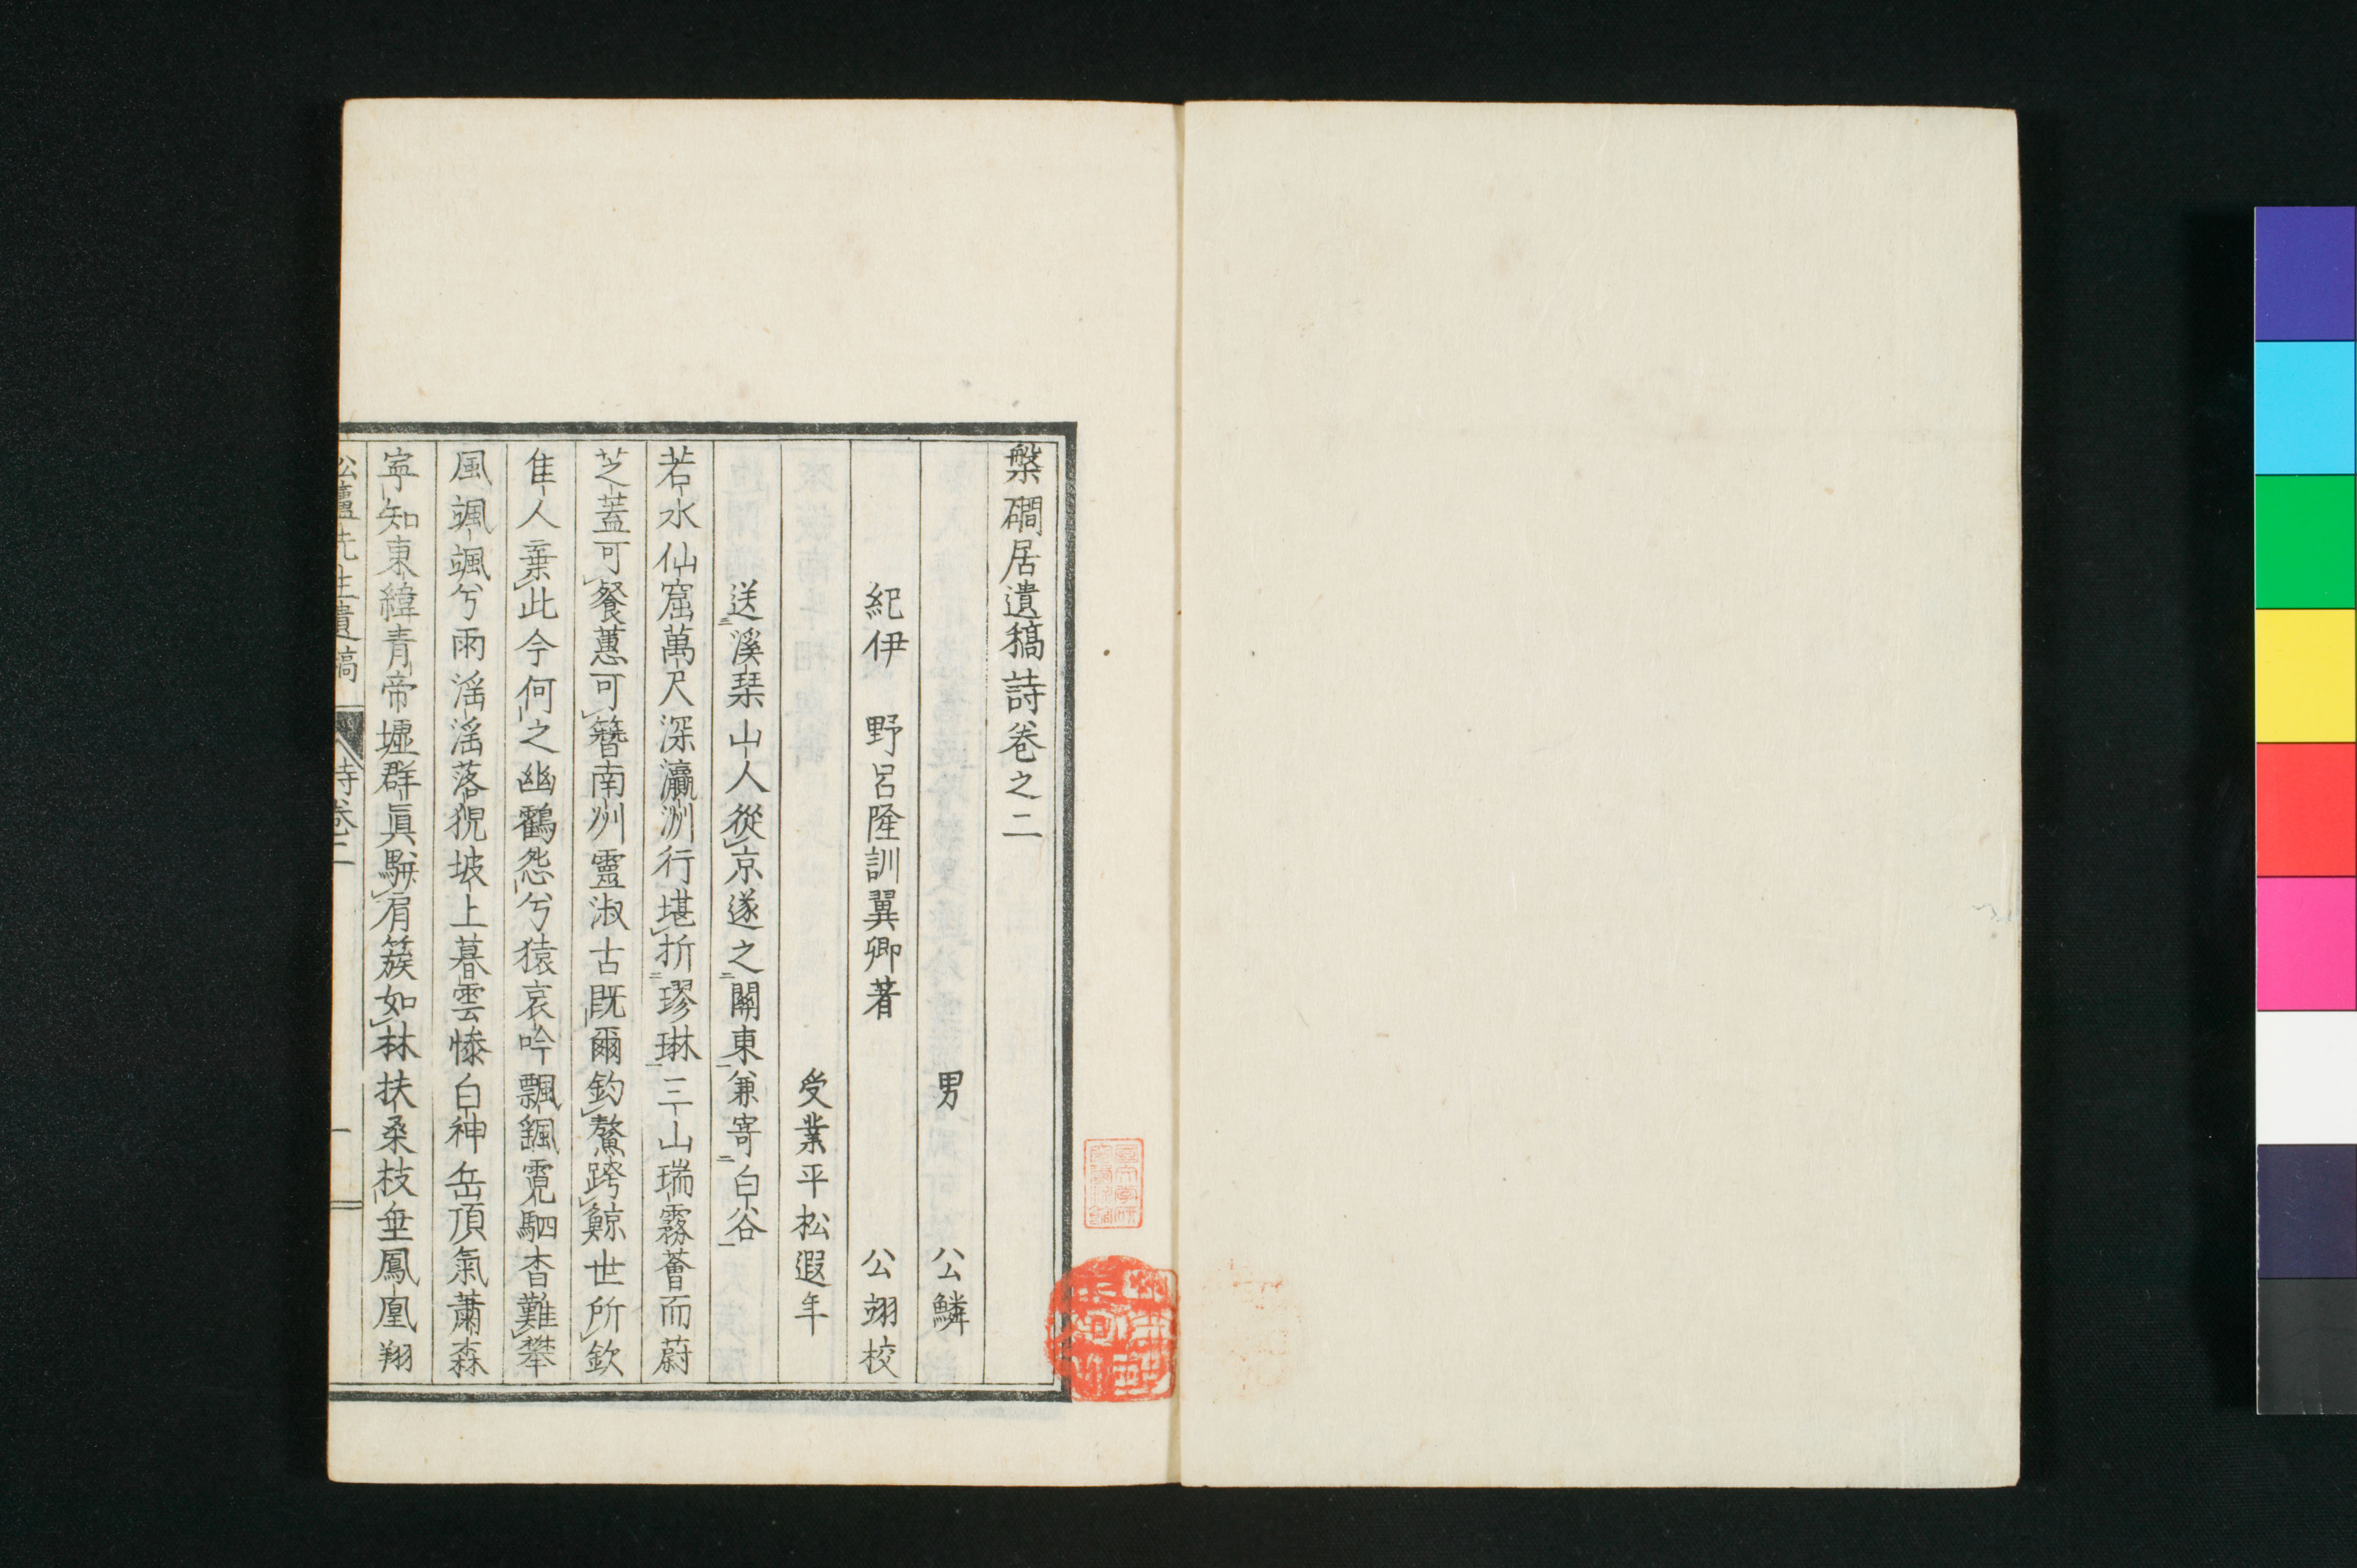 槃礀居遺稿詩卷之二
男　公鱗
紀伊　野呂隆訓翼卿著　公翊校
受業平松遐年
送溪琹山人從京遂之關東兼寄白谷
若水仙窟萬尺深瀛洲行堪折璆琳三山瑞霧薈而蔚
芝蓋可餐蕙可簪南州靈淑古既爾釣鰲跨鯨世所欽
隹人棄此今何之幽鶴怨兮猿哀吟飄飄霓駟杳難攀
風颯颯兮雨滛滛落猊坡上暮雲慘白神岳頂氣蕭森
寧知東緯青帝墟群眞駢肩簇如林扶桑枝垂鳳凰翔
松廬先生遺稿　詩卷二　一